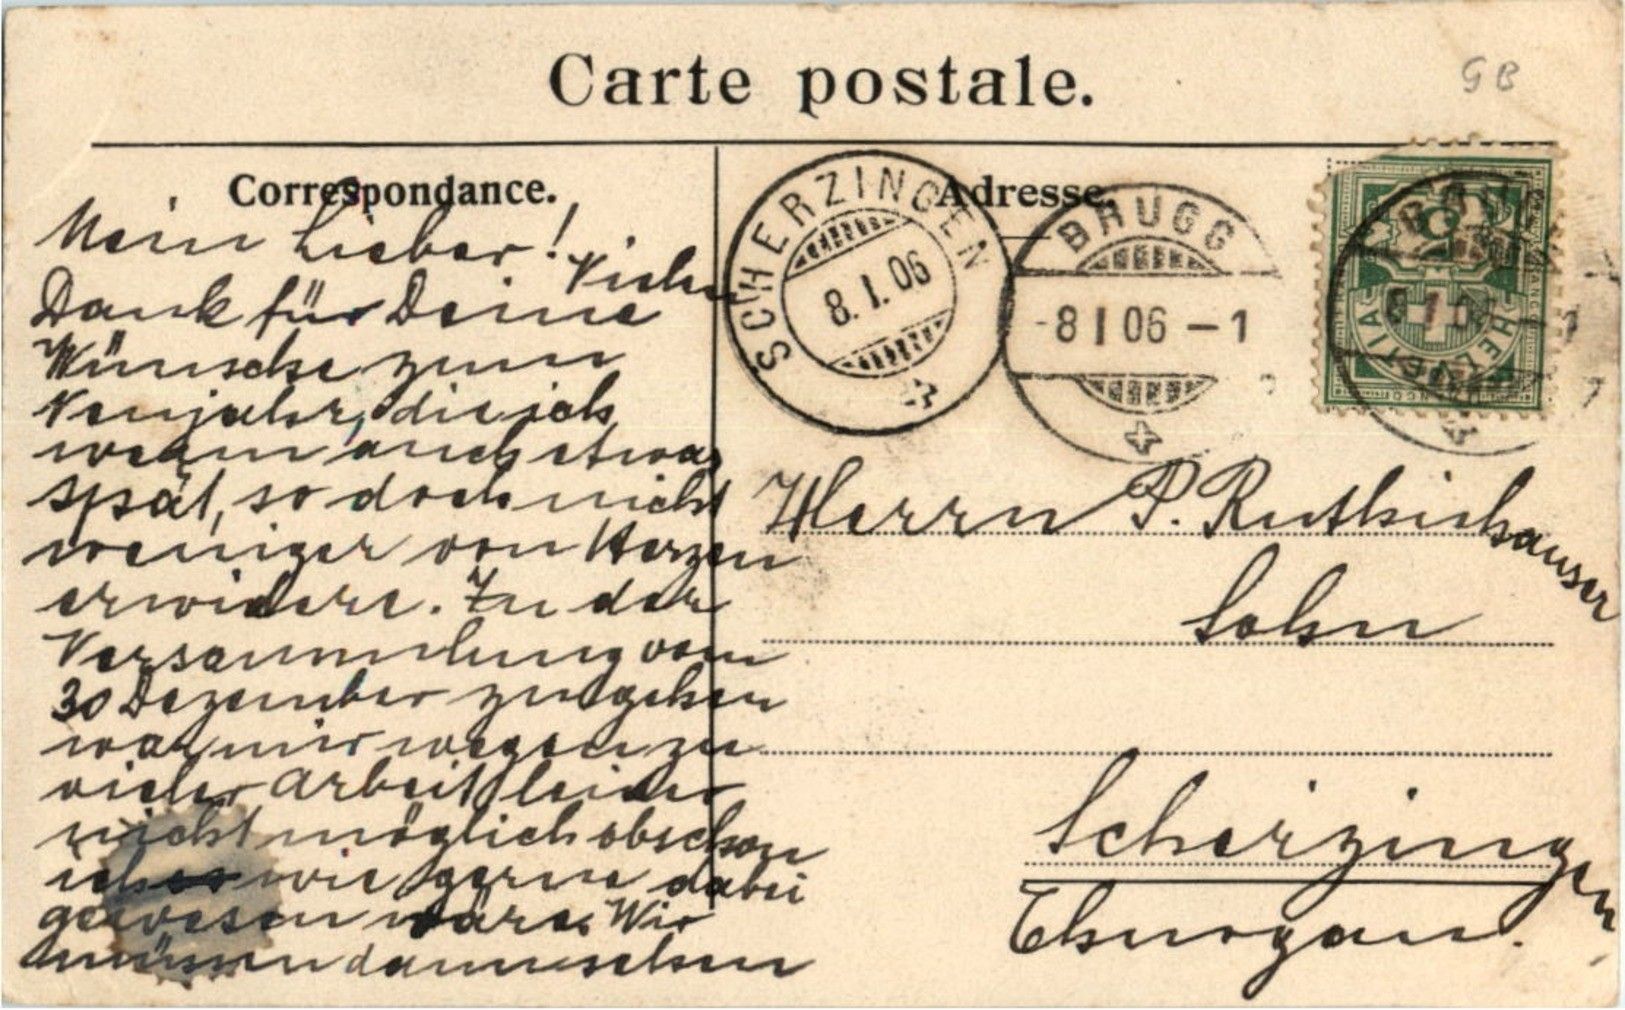 Carte postale.
GB
Correspondance.
Adresse.
SCHERZINGEN
8.I.06
BRUGG
-8 I 06 -1
HELVETIA
Mein Lieber! Vielen
Dank für Deine
Wünsche zum
Neujahr, die ich
wenn auch etwas
spät, so doch nicht
weniger von Herzen
erwidere. Zu der
Versammlung vom
30 Dezember zu gehen
war mir wegen zu
vieler Arbeit leider
nicht möglich obschon
ich wie gerne dabei
gewesen wäre. Wir
müssen dann sehen
Herrn P. Ruthishauser
Sohn
Scherzingen
Thurgau.